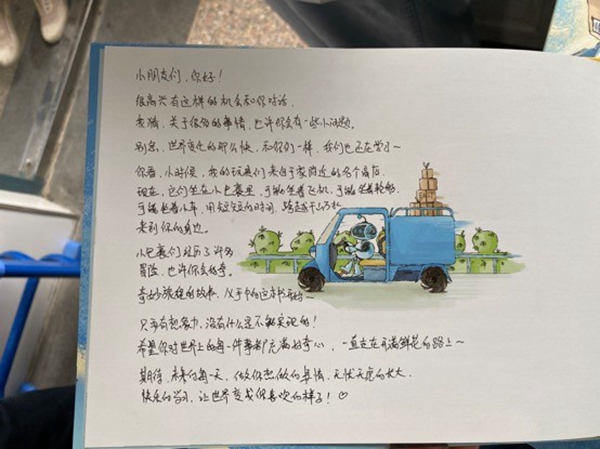 小朋友们，你好！
很高兴有这样的机会和你对话，
我猜，关于很多的事情，也许你会有一些小问题。
别急，世界变化的那么快，和你们一样，我们也还在学习～
你看，小时候，我的玩具们来自于家附近的各个商店
现在，它们坐在小包裹里，可能坐着飞机，可能坐着轮船，
可能坐着小车，用短短的时间，跨越千山万水
来到你的身边。
小包裹们经历了许多
冒险，也许你会好奇。
奇妙旅程的故事，从手中的这本书开始～
只要有想象力，没有什么是不能实现的！
希望你对世界上的每一件事都充满好奇心，一直走在开满鲜花的路上～
期待，未来的每一天，做你想做的事情，无忧无虑的长大，
快乐的学习，让世界变成你喜欢的样子！♡